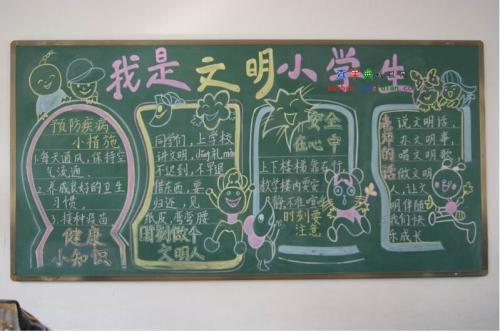 我是文明小学生
预防疾病
小措施
1.每天通风,保持空
气流通
2.养成良好的卫生
习惯.
3.接种疫苗
健康
小知识
同学们,上学校
讲文明,
不迟到,不早退
惜东西,要
归还,见
纸皮弯弯腰
时刻做个
文明人
安全
在心中
上下楼梯靠右行
教学楼内要安
静不准喧
时刻要
注意
老师的话
说文明话,
办文明事,
唱文明歌
做文明
人,让文
明伴随
我们快
乐成长